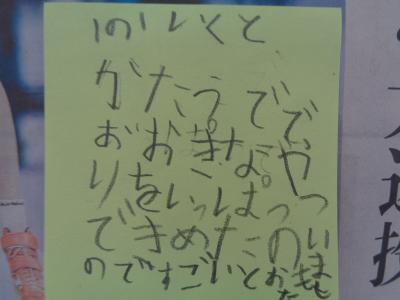 がたうでで
おおきなや
りをいっぱつ
できめたの
のですごいとおもいました